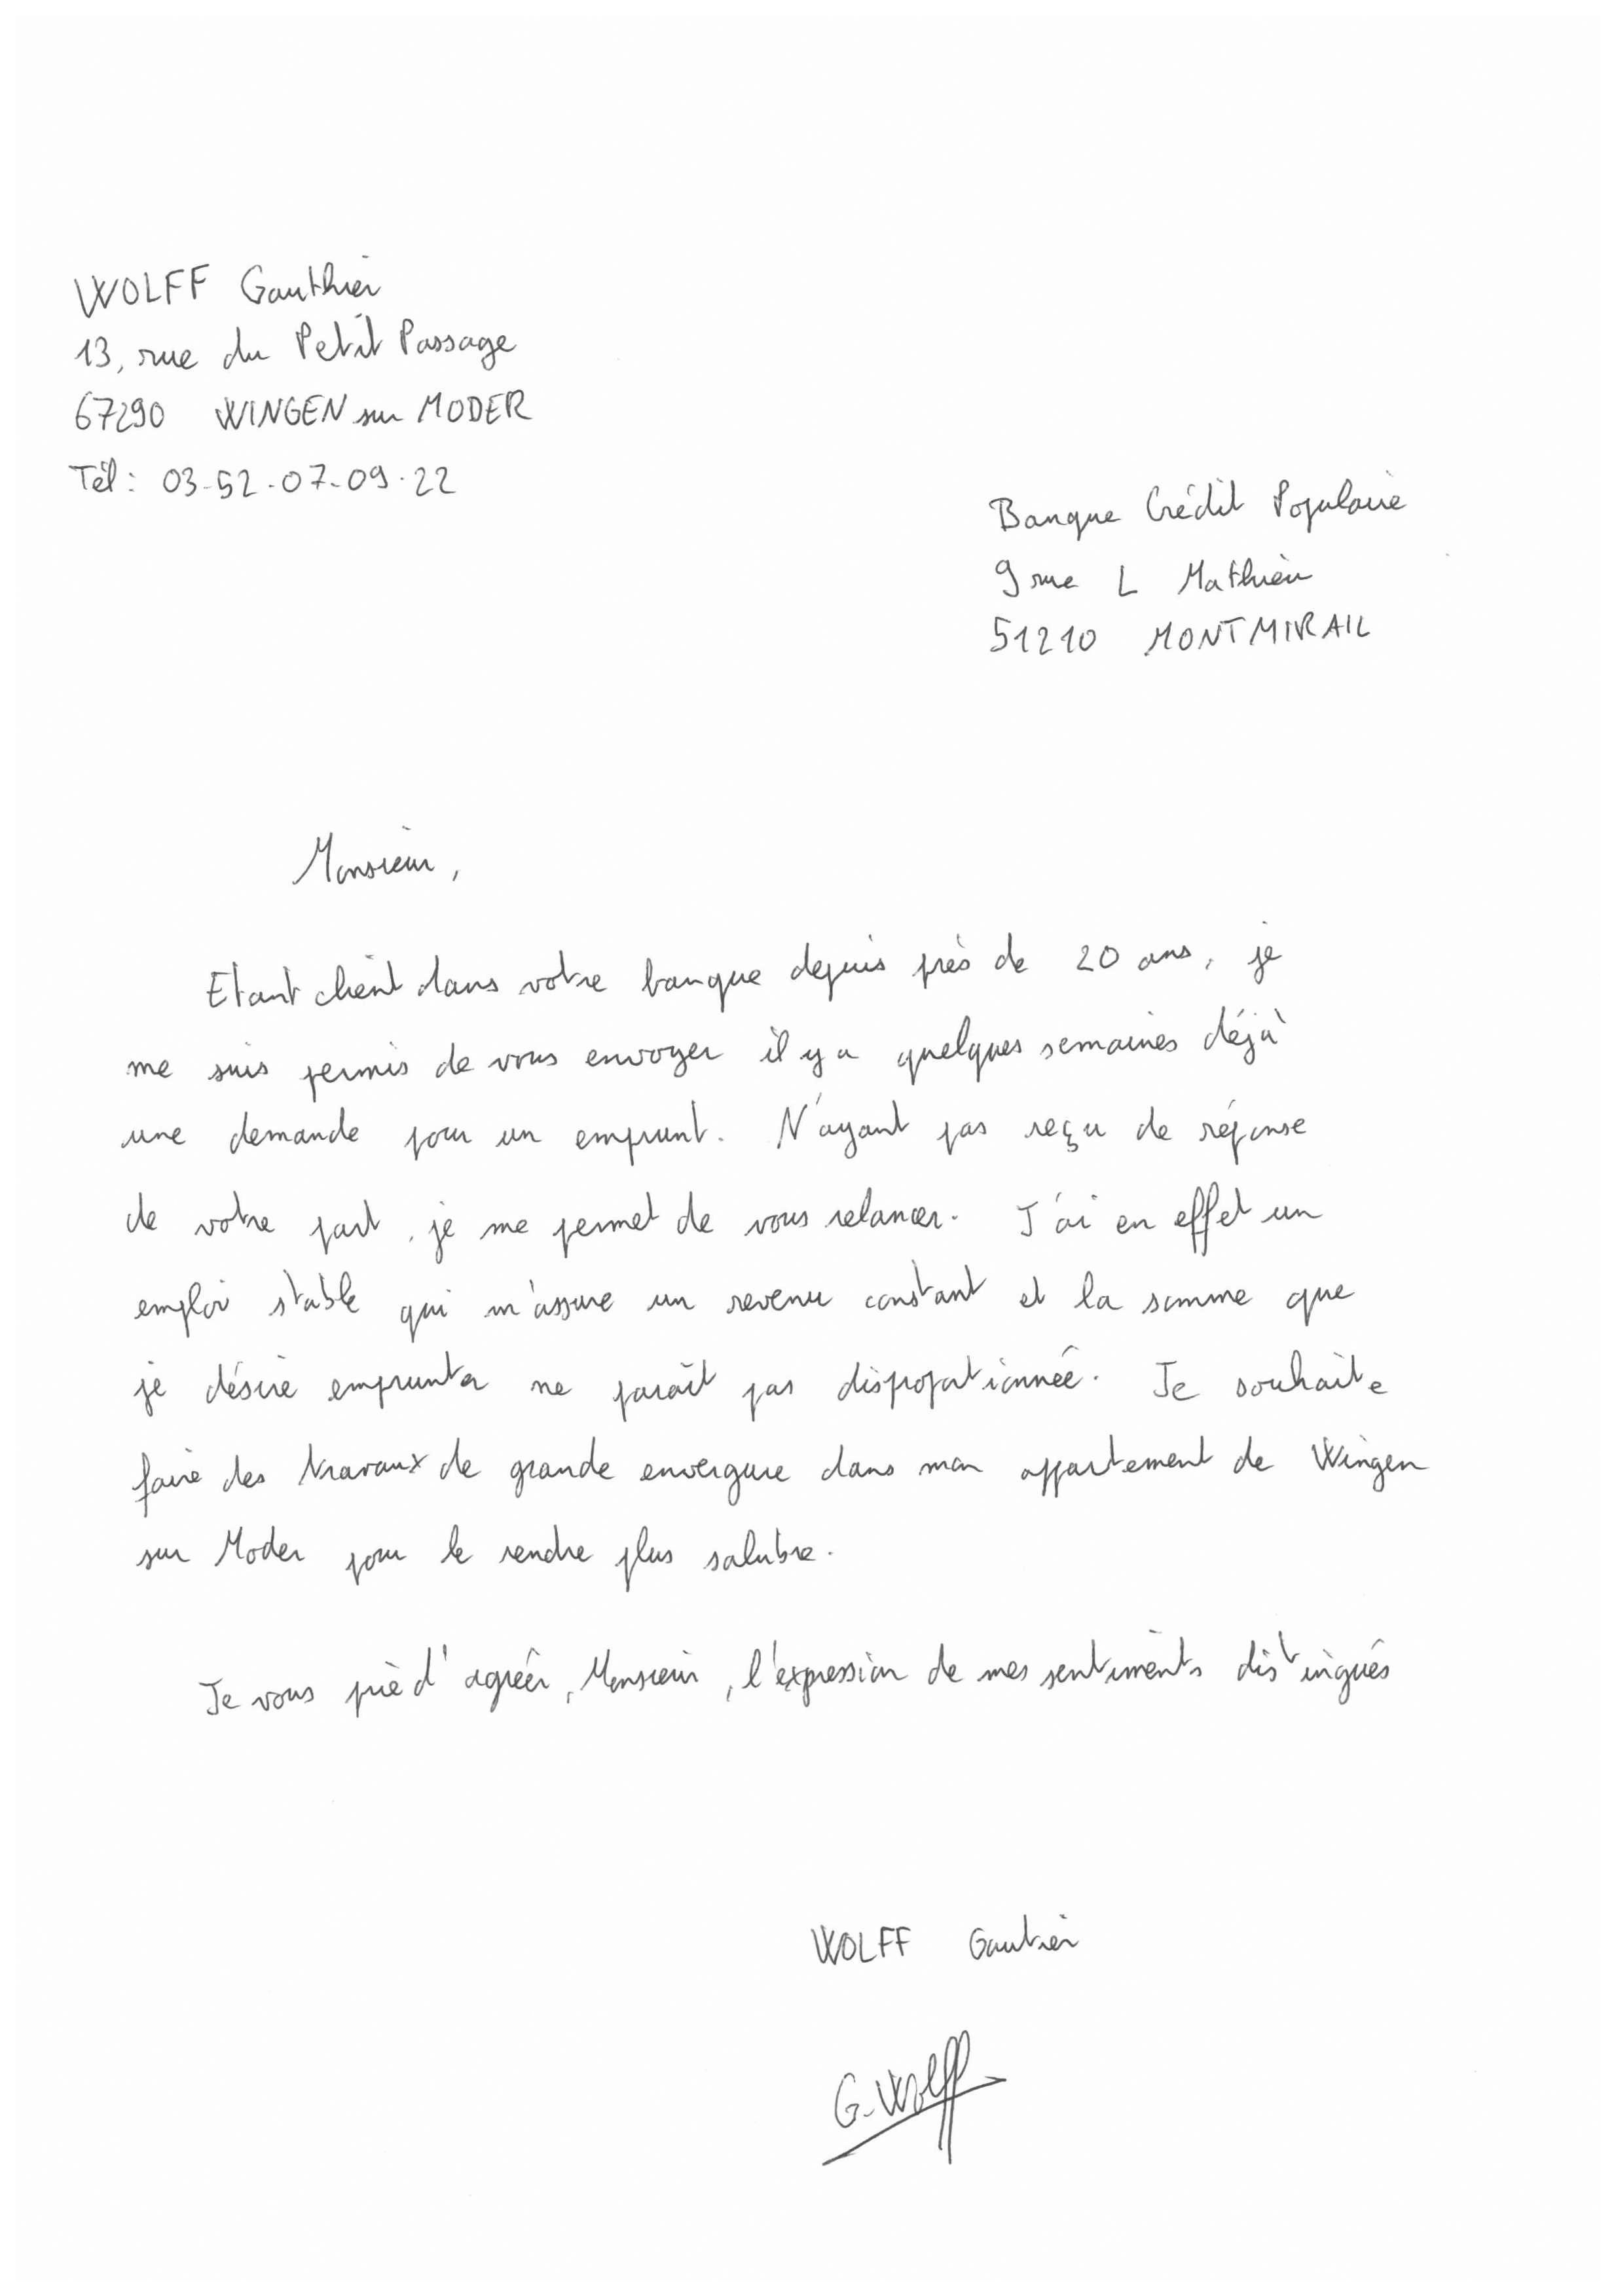 WOLFF Gauthier
13, rue du Petit Passage
67290 WINGEN sur MODER
Tél : 03-52-07-09-22
Banque Crédit Populaire
9 rue L Mathieu
51210 MONTMIRAIL
Monsieur,
Etant client dans votre banque depuis près de 20 ans, je
me suis permis de vous envoyer il y a quelques semaines déjà
une demande pour un emprunt. N'ayant pas reçu de réponse
de votre part, je me permet de vous relancer. J'ai en effet un
emploi stable qui m'assure un revenu constant et la somme que
je désire emprunter ne paraît pas disproportionnée. Je souhaite
faire des travaux de grande envergure dans mon appartement de Wingen
sur Moder pour le rendre plus salubre.
Je vous prie d'agréer, Monsieur, l'expression de mes sentiments distingués
WOLFF Gautier
G. Wolff